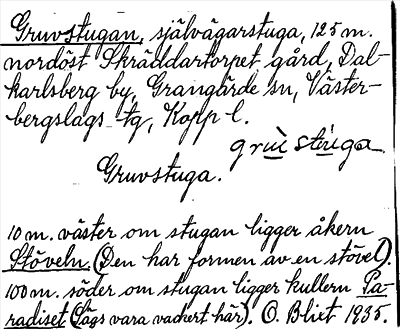 Gruvstugan, självägarstuga, 125 m.
nordöst Skräddartorpet gård, Dal-
karlsberg by, Grangärde sn, Väster-
bergslags tg, Kopp l.
Gruvstuga.
10 m. väster om stugan ligger åkern
Stöveln. (Den har formen av en stövel).
100 m. söder om stugan ligger kullern Pa-
radiset (Sägs vara vackert här). O. Blixt 1935.